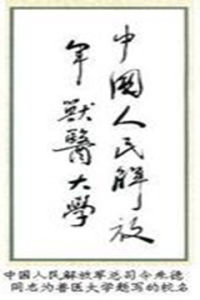 中國人民解放
軍獸醫大學
中国人民解放军总司令朱德
同志为兽医大学题写的校名